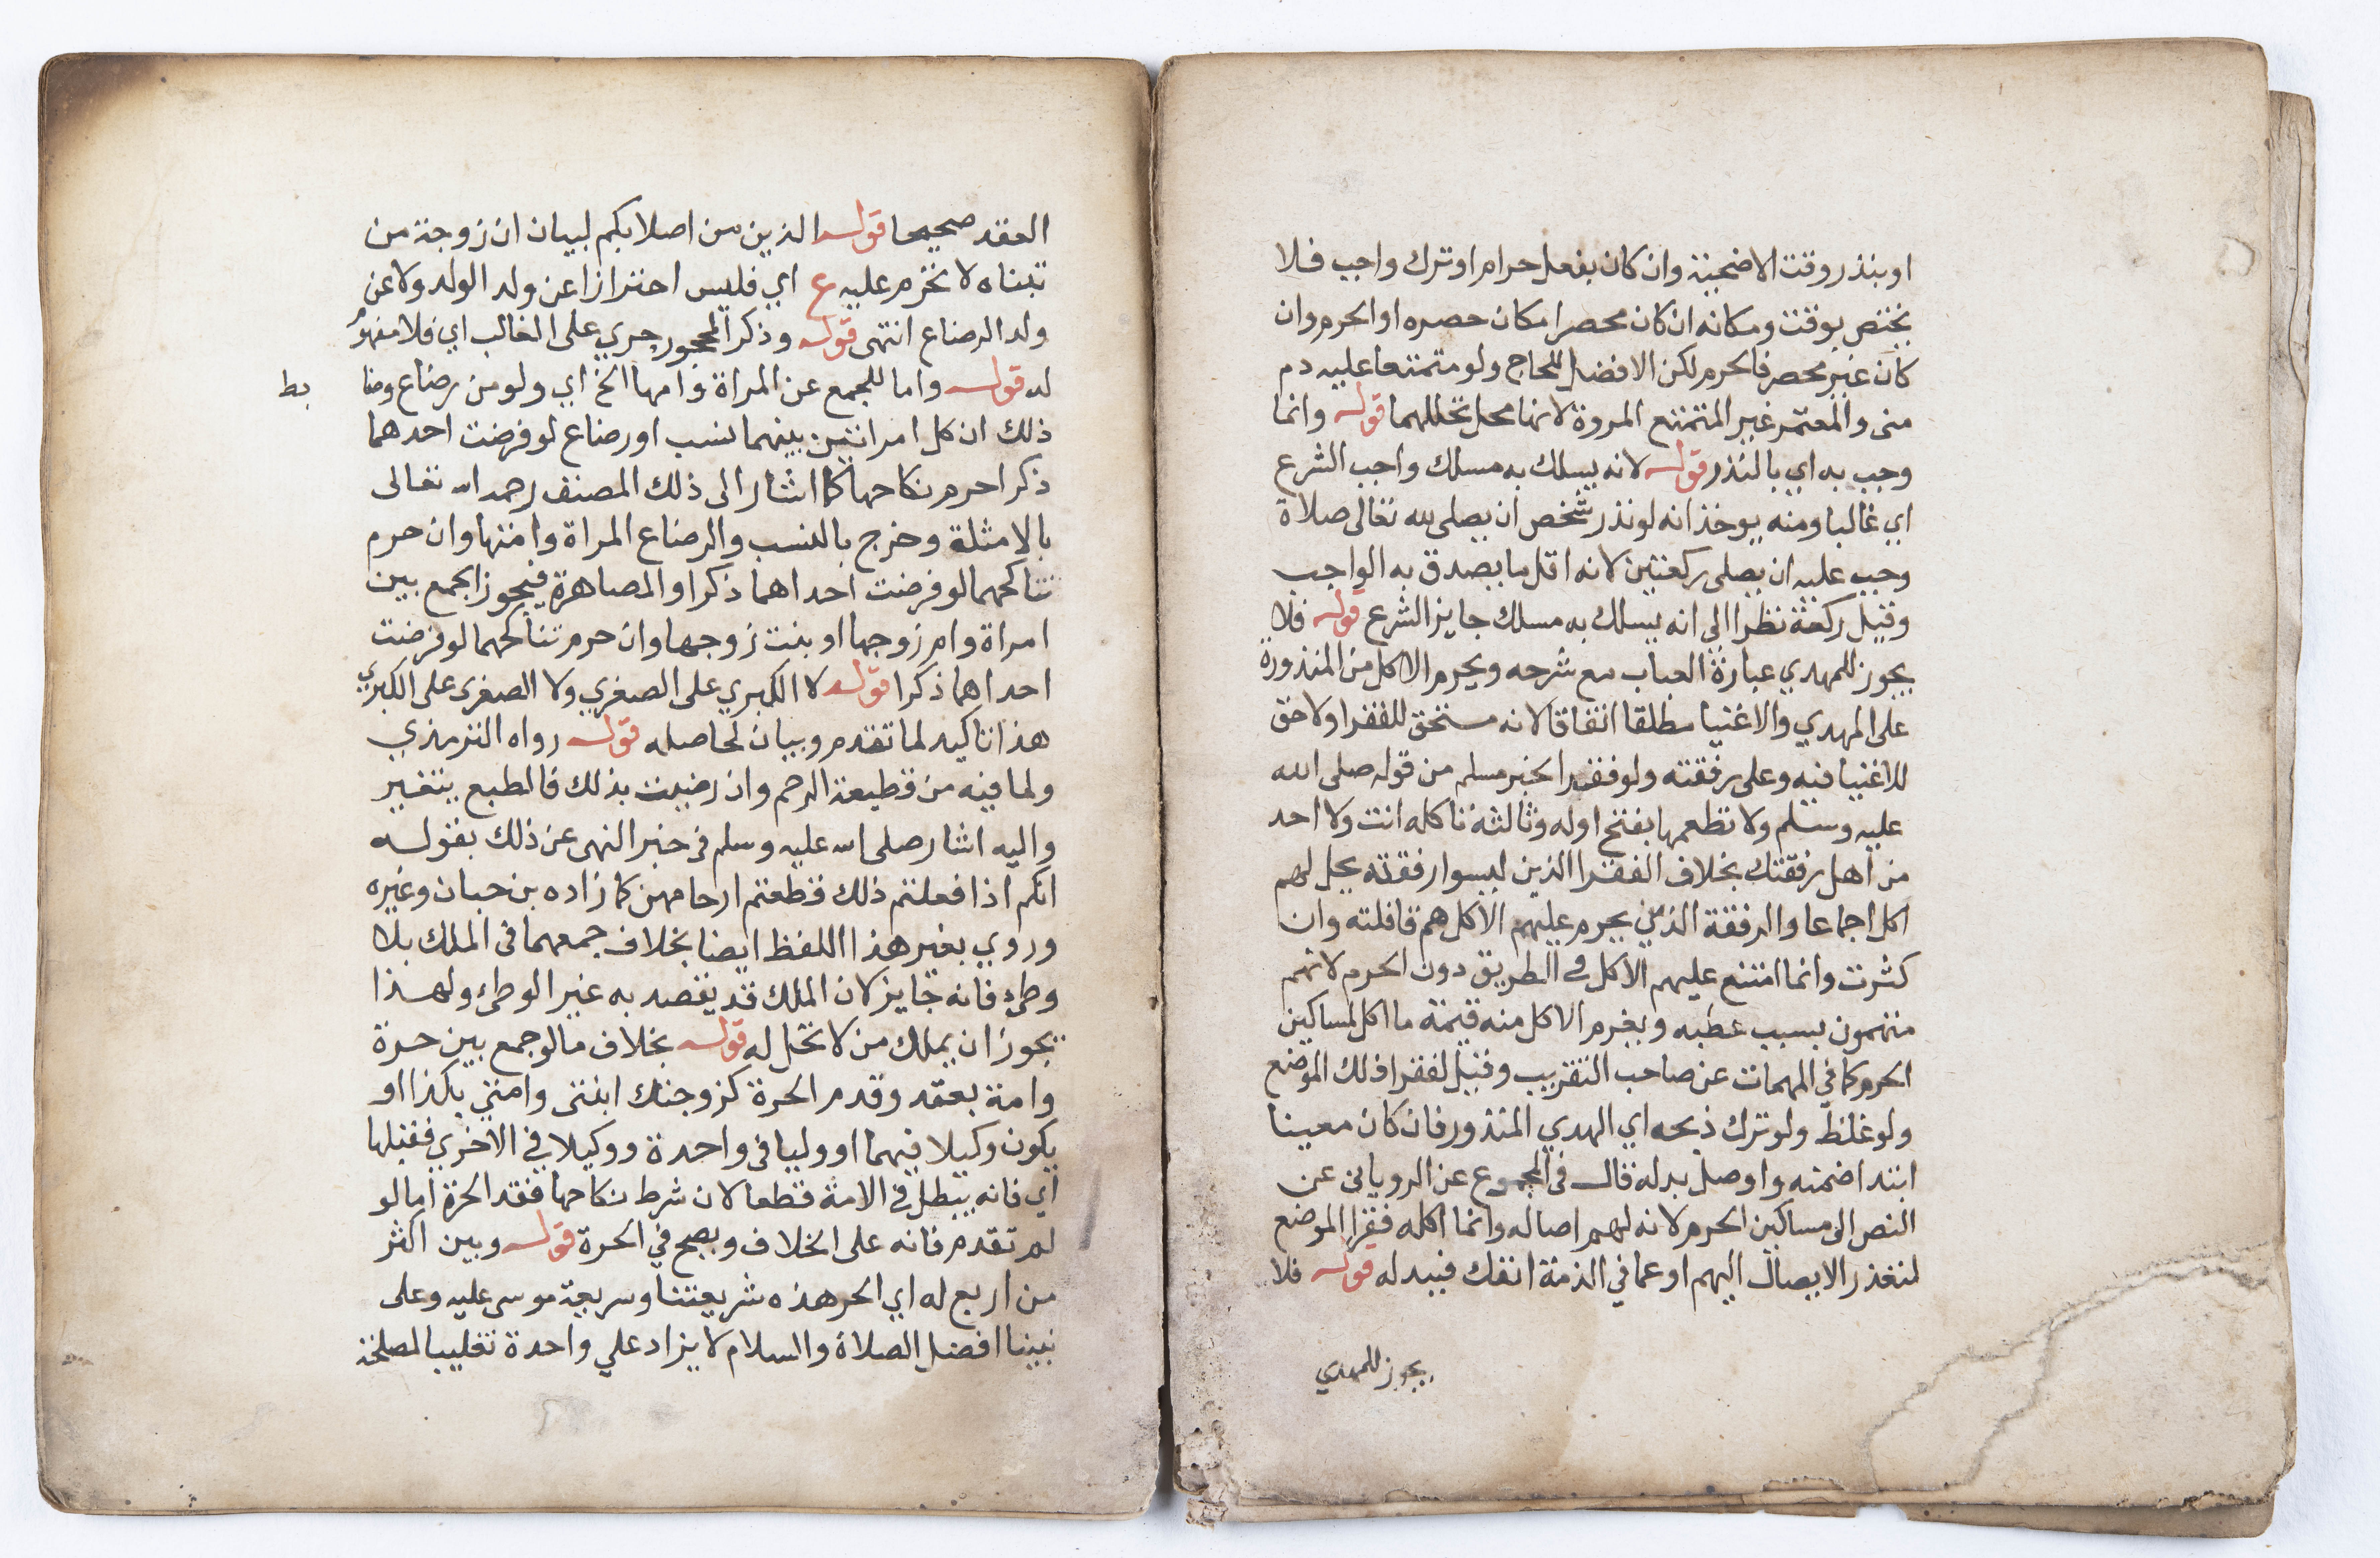 او بنذر وقت الاضحية وان كان بفعل حرام او ترك واجب فلا
يختص بوقت ومكانه ان كان محصرا مكان حصره او الحرم وان
كان غير محصر فالحرم لكن الافضل للحاج ولو متمتعا عليه دم
منى والمعتمر غير المتمتع المروة لانها محل تحللهما قوله وانما
وجب به اي بالنذر قوله لانه يسلك به مسلك واجب الشرع
اي غالبا ومنه يوخذ انه لو نذر شخص ان يصلى لله تعالى صلاة
وجب عليه ان يصلى ركعتين لانه اقل ما يصدق به الواجب
وقيل ركعة نظرا الى انه يسلك به مسلك جايز الشرع قوله فلا
يجوز للمهدي عبارة العباب مع شرحه ويحرم الاكل من المنذورة
على المهدي والاغنيا مطلقا اتفاقا لانه مستحق للفقرا ولا حق
للاغنيا فيه وعلى رفقته ولو فقرا لخبر مسلم من قوله صلى الله
عليه وسلم ولا تطعمها بفتح اوله وثالثه تاكله انت ولا احد
من اهل رفقتك بخلاف الفقرا الذين ليسوا رفقته يحل لهم
اكل اجماعا والرفقة الذين يحرم عليهم الاكل هم قافلته وان
كثرت وانما امتنع عليهم الاكل في الطريق دون الحرم لانهم
متهمون بسبب عطبه ويغرم الاكل منه قيمة ما اكل لمساكين
الحرم كما في المهمات عن صاحب التقريب وقيل لفقرا ذلك الموضع
ولو غلط ولو ترك ذبحه اي الهدي المنذور فان كان معينا
ابتدا ضمنه واوصل بدله قال في المجموع عن الروياني عن
النص الى مساكين الحرم لانه لهم اصاله وانما اكله فقرا الموضع
لتعذر الايصال اليهم او عما في الذمة انفك فيبدله قوله فلا
يجوز للمهدي
العقد صحيحا قوله الذين من اصلابكم لبيان ان زوجة من
تبناه لا تحرم عليه ع اي فليس احترازا عن ولد الولد ولا عن
ولد الرضاع انتهى قوله وذكر الحجور جري على الغالب اي فلا مفهوم
له قوله واما للجمع عن المراة وامها الخ اي ولو من رضاع وضا
بط
ذلك ان كل امراتين بينهما نسب او رضاع لو فرضت احدهما
ذكرا حرم نكاحها كما اشار الى ذلك المصنف رحمه الله تعالى
بالامثلة وخرج بالنسب والرضاع المراة وامتها وان حرم
تناكحهما لو فرضت احداهما ذكرا والمصاهرة فيجوز الجمع بين
امراة وام زوجها او بنت زوجها وان حرم تناكحهما لو فرضت
احداهما ذكرا قوله لا الكبري على الصغري ولا الصغرى على الكبري
هذا تاكيد لما تقدم وبيان لحاصله قوله رواه الترمذي
ولما فيه من قطيعة الرحم وان رضيت بذلك فالطبع يتغير
واليه اشار صلى الله عليه وسلم في خبر النهى عن ذلك بقوله
انكم اذا فعلتم ذلك قطعتم ارحامهن كما زاده بن حبان وغيره
وروي بغير هذا اللفظ ايضا بخلاف جمعهما في الملك بلا
وطء فانه جايز لان الملك قد يقصد به غير الوطء ولهذا
يجوز ان يملك من لا تحل له قوله بخلاف ما لو جمع بين حرة
وامة بعقد وقدم الحرة كزوجتك ابنتى وامتي بكذا او
يكون وكيلا فيهما او وليا في واحدة ووكيلا في الاخري فقبلها
اي فانه يبطل في الامة قطعا لان شرط نكاحها فقد الحرة اما لو
لم تقدم فانه على الخلاف ويصح في الحرة قوله وبين اكثر
من اربع له اي الحر هذه شريعتنا وسريعة موسى عليه وعلى
نبينا افضل الصلاة والسلام لا يزاد على واحدة تغليبا لمصلحة